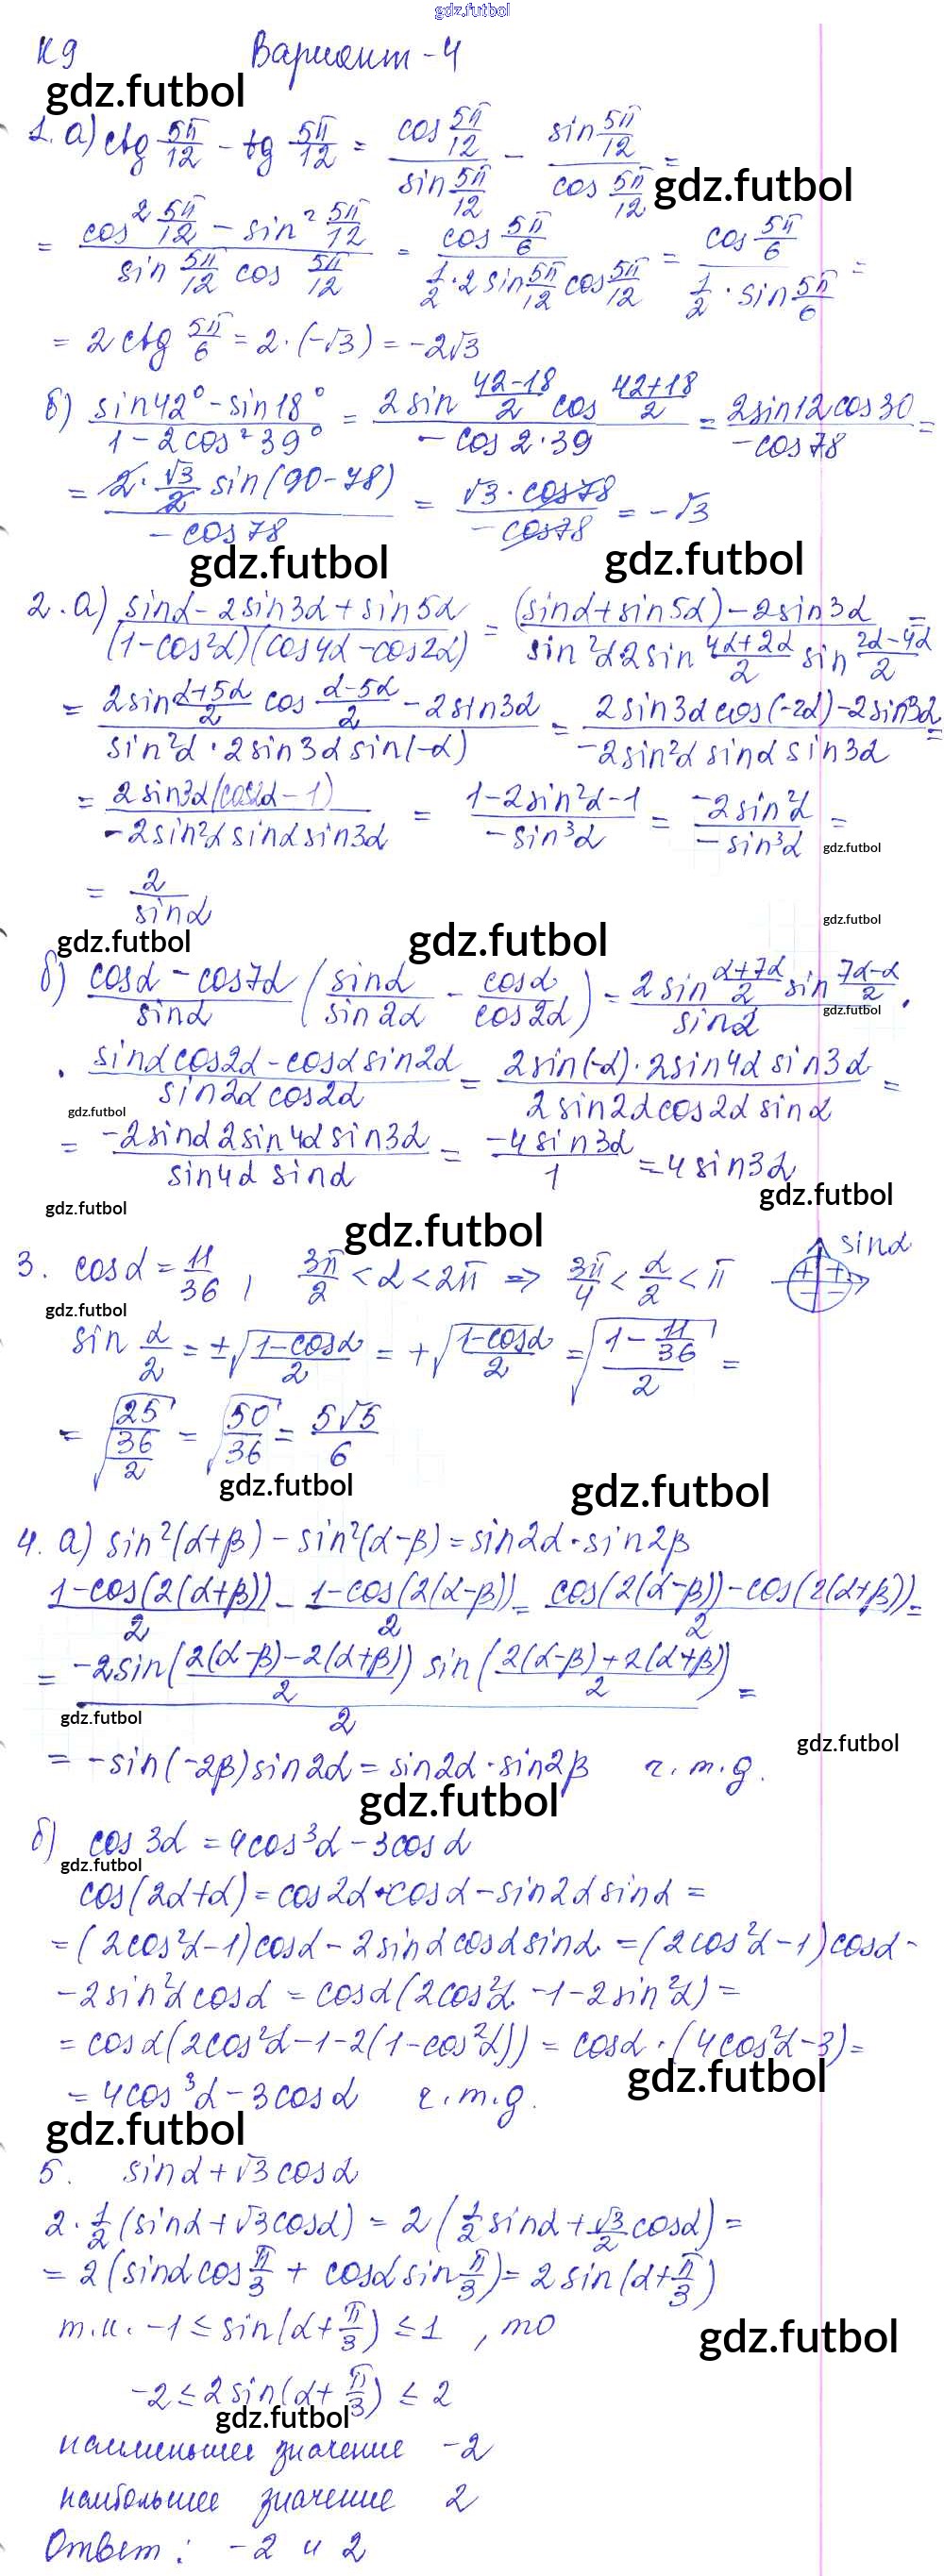 gdz.futbol
К9 Вариант-4
gdz.futbol
1. а) ctg 5π/12 - tg 5π/12 = cos 5π/12 / sin 5π/12 - sin 5π/12 / cos 5π/12 =
gdz.futbol
= (cos² 5π/12 - sin² 5π/12) / (sin 5π/12 cos 5π/12) = cos 5π/6 / (1/2 · 2 sin 5π/12 cos 5π/12) = cos 5π/6 / (1/2 · sin 5π/6) =
= 2 ctg 5π/6 = 2·(-√3) = -2√3
б) (sin42° - sin18°) / (1 - 2cos²39°) = (2 sin (42-18)/2 cos (42+18)/2) / (-cos 2·39) = 2sin12cos30 / -cos78 =
= (2·√3/2 sin(90-78)) / -cos78 = √3·cos78 / -cos78 = -√3
gdz.futbol gdz.futbol
2. а) (sinα - 2sin3α + sin5α) / ((1-cos²α)(cos4α - cos2α)) = ((sinα + sin5α) - 2sin3α) / (sin²α 2sin (4α+2α)/2 sin (2α-4α)/2) =
= (2sin (α+5α)/2 cos (α-5α)/2 - 2sin3α) / (sin²α · 2sin3α sin(-α)) = (2sin3α cos(-2α) - 2sin3α) / (-2sin²α sinα sin3α) =
= 2sin3α(cos2α - 1) / (-2sin²α sinα sin3α) = (1-2sin²α-1) / (-sin³α) = -2sin²α / -sin³α =
gdz.futbol
= 2 / sinα
gdz.futbol
gdz.futbol gdz.futbol
б) (cosα - cos7α) / sinα (sinα / sin2α - cosα / cos2α) = (2sin (α+7α)/2 sin (7α-α)/2) / sinα ·
gdz.futbol
· (sinα cos2α - cosα sin2α) / (sin2α cos2α) = (2sin(-α)·2sin4α sin3α) / (2sin2α cos2α sinα) =
gdz.futbol
= (-2sinα 2sin4α sin3α) / (sin4α sinα) = -4sin3α / 1 = 4sin3α
gdz.futbol gdz.futbol
gdz.futbol
3. cosα = 11/36, 3π/2 < α < 2π => 3π/4 < α/2 < π sinα
gdz.futbol
sin α/2 = ±√((1-cosα)/2) = +√((1-cosα)/2) = √((1 - 11/36)/2) =
= √((25/36)/2) = √(50/36) = 5√5/6
gdz.futbol gdz.futbol
4. а) sin²(α+β) - sin²(α-β) = sin2α·sin2β
(1-cos(2(α+β)))/2 - (1-cos(2(α-β)))/2 = (cos(2(α-β)) - cos(2(α+β)))/2 =
= (-2sin((2(α-β)-2(α+β))/2) sin((2(α-β)+2(α+β))/2)) / 2 =
gdz.futbol gdz.futbol
= -sin(-2β)sin2α = sin2α·sin2β ч.т.д.
gdz.futbol
б) cos3α = 4cos³α - 3cosα
gdz.futbol
cos(2α+α) = cos2α·cosα - sin2α sinα =
= (2cos²α-1)cosα - 2sinα cosα sinα = (2cos²α-1)cosα -
-2sin²α cosα = cosα(2cos²α - 1 - 2sin²α) =
= cosα(2cos²α-1-2(1-cos²α)) = cosα·(4cos²α-3) =
gdz.futbol
= 4cos³α - 3cosα ч.т.д.
gdz.futbol
5. sinα + √3cosα
2·1/2(sinα + √3cosα) = 2(1/2 sinα + √3/2 cosα) =
= 2(sinα cos π/3 + cosα sin π/3) = 2sin(α + π/3)
т.к. -1 ≤ sin(α + π/3) ≤ 1, то
gdz.futbol
-2 ≤ 2sin(α + π/3) ≤ 2
gdz.futbol
наименьшее значение -2
наибольшее значение 2
Ответ: -2 и 2